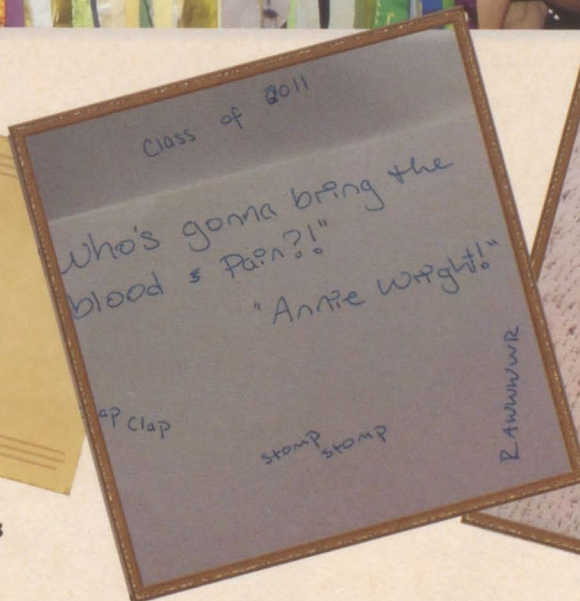 Class of 2011
Who's gonna bring the
blood & Pain?!"
"Annie Wright!"
ap Clap
stomp stomp
RAWWWWR